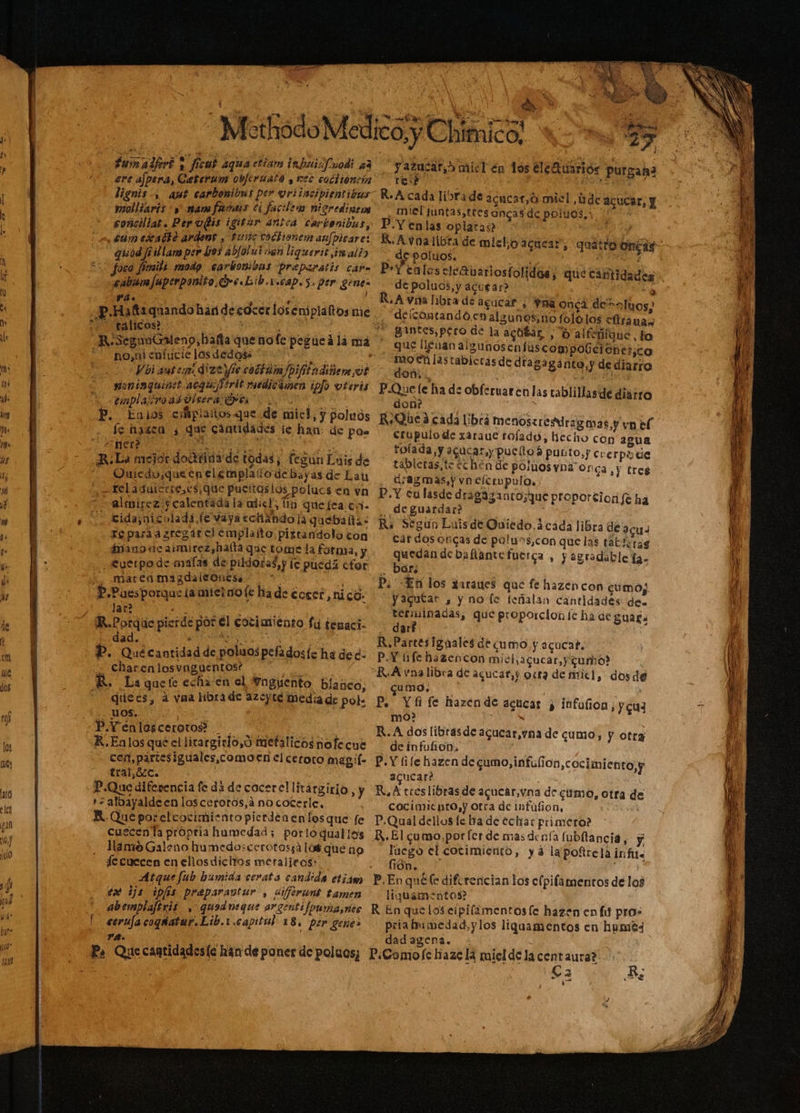 Methodo Medico, y Chimico.
ere aspera, Caterum observato, nec coctionem
lignis, aut carbonibus per vri incipientibus
conciliat. Per vstis igitur antea carbonibus,
quod si illam per hos absolui non liquerit, in alio
foco simili modo carbonibus preparatis car-
cabum superponito, &c. Lib.1.cap.5. per gene-
ra.
P. Hasta quando han de cocer los emplastos me
talicos?
R. Segun Galeno, hasta que no se pegue à la ma
no, ni ensucie los dedos.
emplastro ad viscera, &c.
P. En los emplastos que de miel, y poluos
se hazen, que cantidades se han de po-
ner?
R. La mejor doctrina de todas, segun Luis de
Ouiedo, que en el emplasto de bayas de Lau
rel aduierte, es, que puestos los polucs en vn
almirez, y calentada la miel, sin que sea co-
cida, ni colada, se vaya echando la que basta-
re para agregar el emplasto pistandolo con
mano de almirez, hasta que tome la forma, y
cuerpo de masas de pildoras, y se pueda estar
mar en magdaleones.
P. Pues porque la miel no se ha de cocer, ni co-
lar?
R. Porque pierde por el cocimiento su tenaci-
dad.
P. Què cantidad de poluos pesados se ha de e-
char en los vnguentos?
R. La que se echa en el Vnguento blanco,
que es, à vna libra de azeyte media de pol-
uos.
P. Y en los cerotos?
R. En los que el litargirio, ò metalicos no se cue
cen, partes iguales, como en el ceroto magis-
tral, &c.
P. Que diferencia se dà de cocer el litargirio, y
albayalde en los cerotos, à no cocerle.
R. Que por el cocimiento pierden en los que se
cuecen la propria humedad; por lo qual los
llamò Galeno humedo: cerotos, à los que no
se cuecen en ellos dichos metalicos:
Atque sub humida cerata candida etiam
ex ijs ipsis praparantur, differunt tamen
ab emplastris, quod neque argenti spuma, nec
cerusa coquatur. Lib.1.capitul. 18. per gene-
ra.
P. Que cantidades se han de poner de poluos,
y azucar, ò miel en los electuarios purgan-
tes?
R. A cada libra de açucar, ò miel, ù de açucar, y
miel juntas, tres onças de poluos.
P. Y en las opiatas?
R. A vna libra de miel, o açucar, quatro onças
de poluos.
P. Y en los electuarios solidos, que cantidades
de poluos, y açucar?
R. A vna libra de açucar, vna onça de poluos,
descontando en algunos, no solo los estraua-
gantes, pero de la açucar, ò alfeñique, lo
que lleuan algunos en sus composiciones, co
mo en las tabletas de dragaganto, y de diarro
don.
P. Que se ha de obseruar en las tablillas de diarro
don?
R. Que à cada libra menos tres dragmas, y vn es
crupulo de xaraue rosado, hecho con agua
rosada, y açucar, y puesto à punto, y cuerpo de
tabletas, se echen de poluos vna onça, y tres
dragmas, y vn escrupulo.
P. Y en las de dragaganto, que proporcion se ha
de guardar?
R. Segun Luis de Ouiedo, à cada libra de açu-
car dos onças de poluos, con que las tabletas
quedan de bastante fuerça, y agradable sa-
bor.
P. En los xaraues que se hazen con çumo,
y açucar, y no se señalan cantidades de-
terminadas, que proporcion se ha de guar-
dar?
R. Partes iguales de çumo, y açucar.
P. Y si se hazen con miel, açucar, y çumo?
R. A vna libra de açucar, y otra de miel, dos de
çumo.
P. Y si se hazen de açucar, infusion, y çu-
mo?
R. A dos libras de açucar, vna de çumo, y otra
de infusion.
P. Y si se hazen de çumo, infusion, cocimiento, y
açucar?
R. A tres libras de açucar, vna de çumo, otra de
cocimiento, y otra de infusion.
P. Qual dellos se ha de echar primero?
R. El çumo, por ser de mas densa substancia, y
luego el cocimiento, y à la postre la infu-
sion.
P. En què se diferencian los espisamentos de los
liquamentos?
R. En que los espisamentos se hazen en su pro-
pria humedad, y los liquamentos en humed
dad agena.
P. Como se haze la miel de la centaura?
C 2 R.